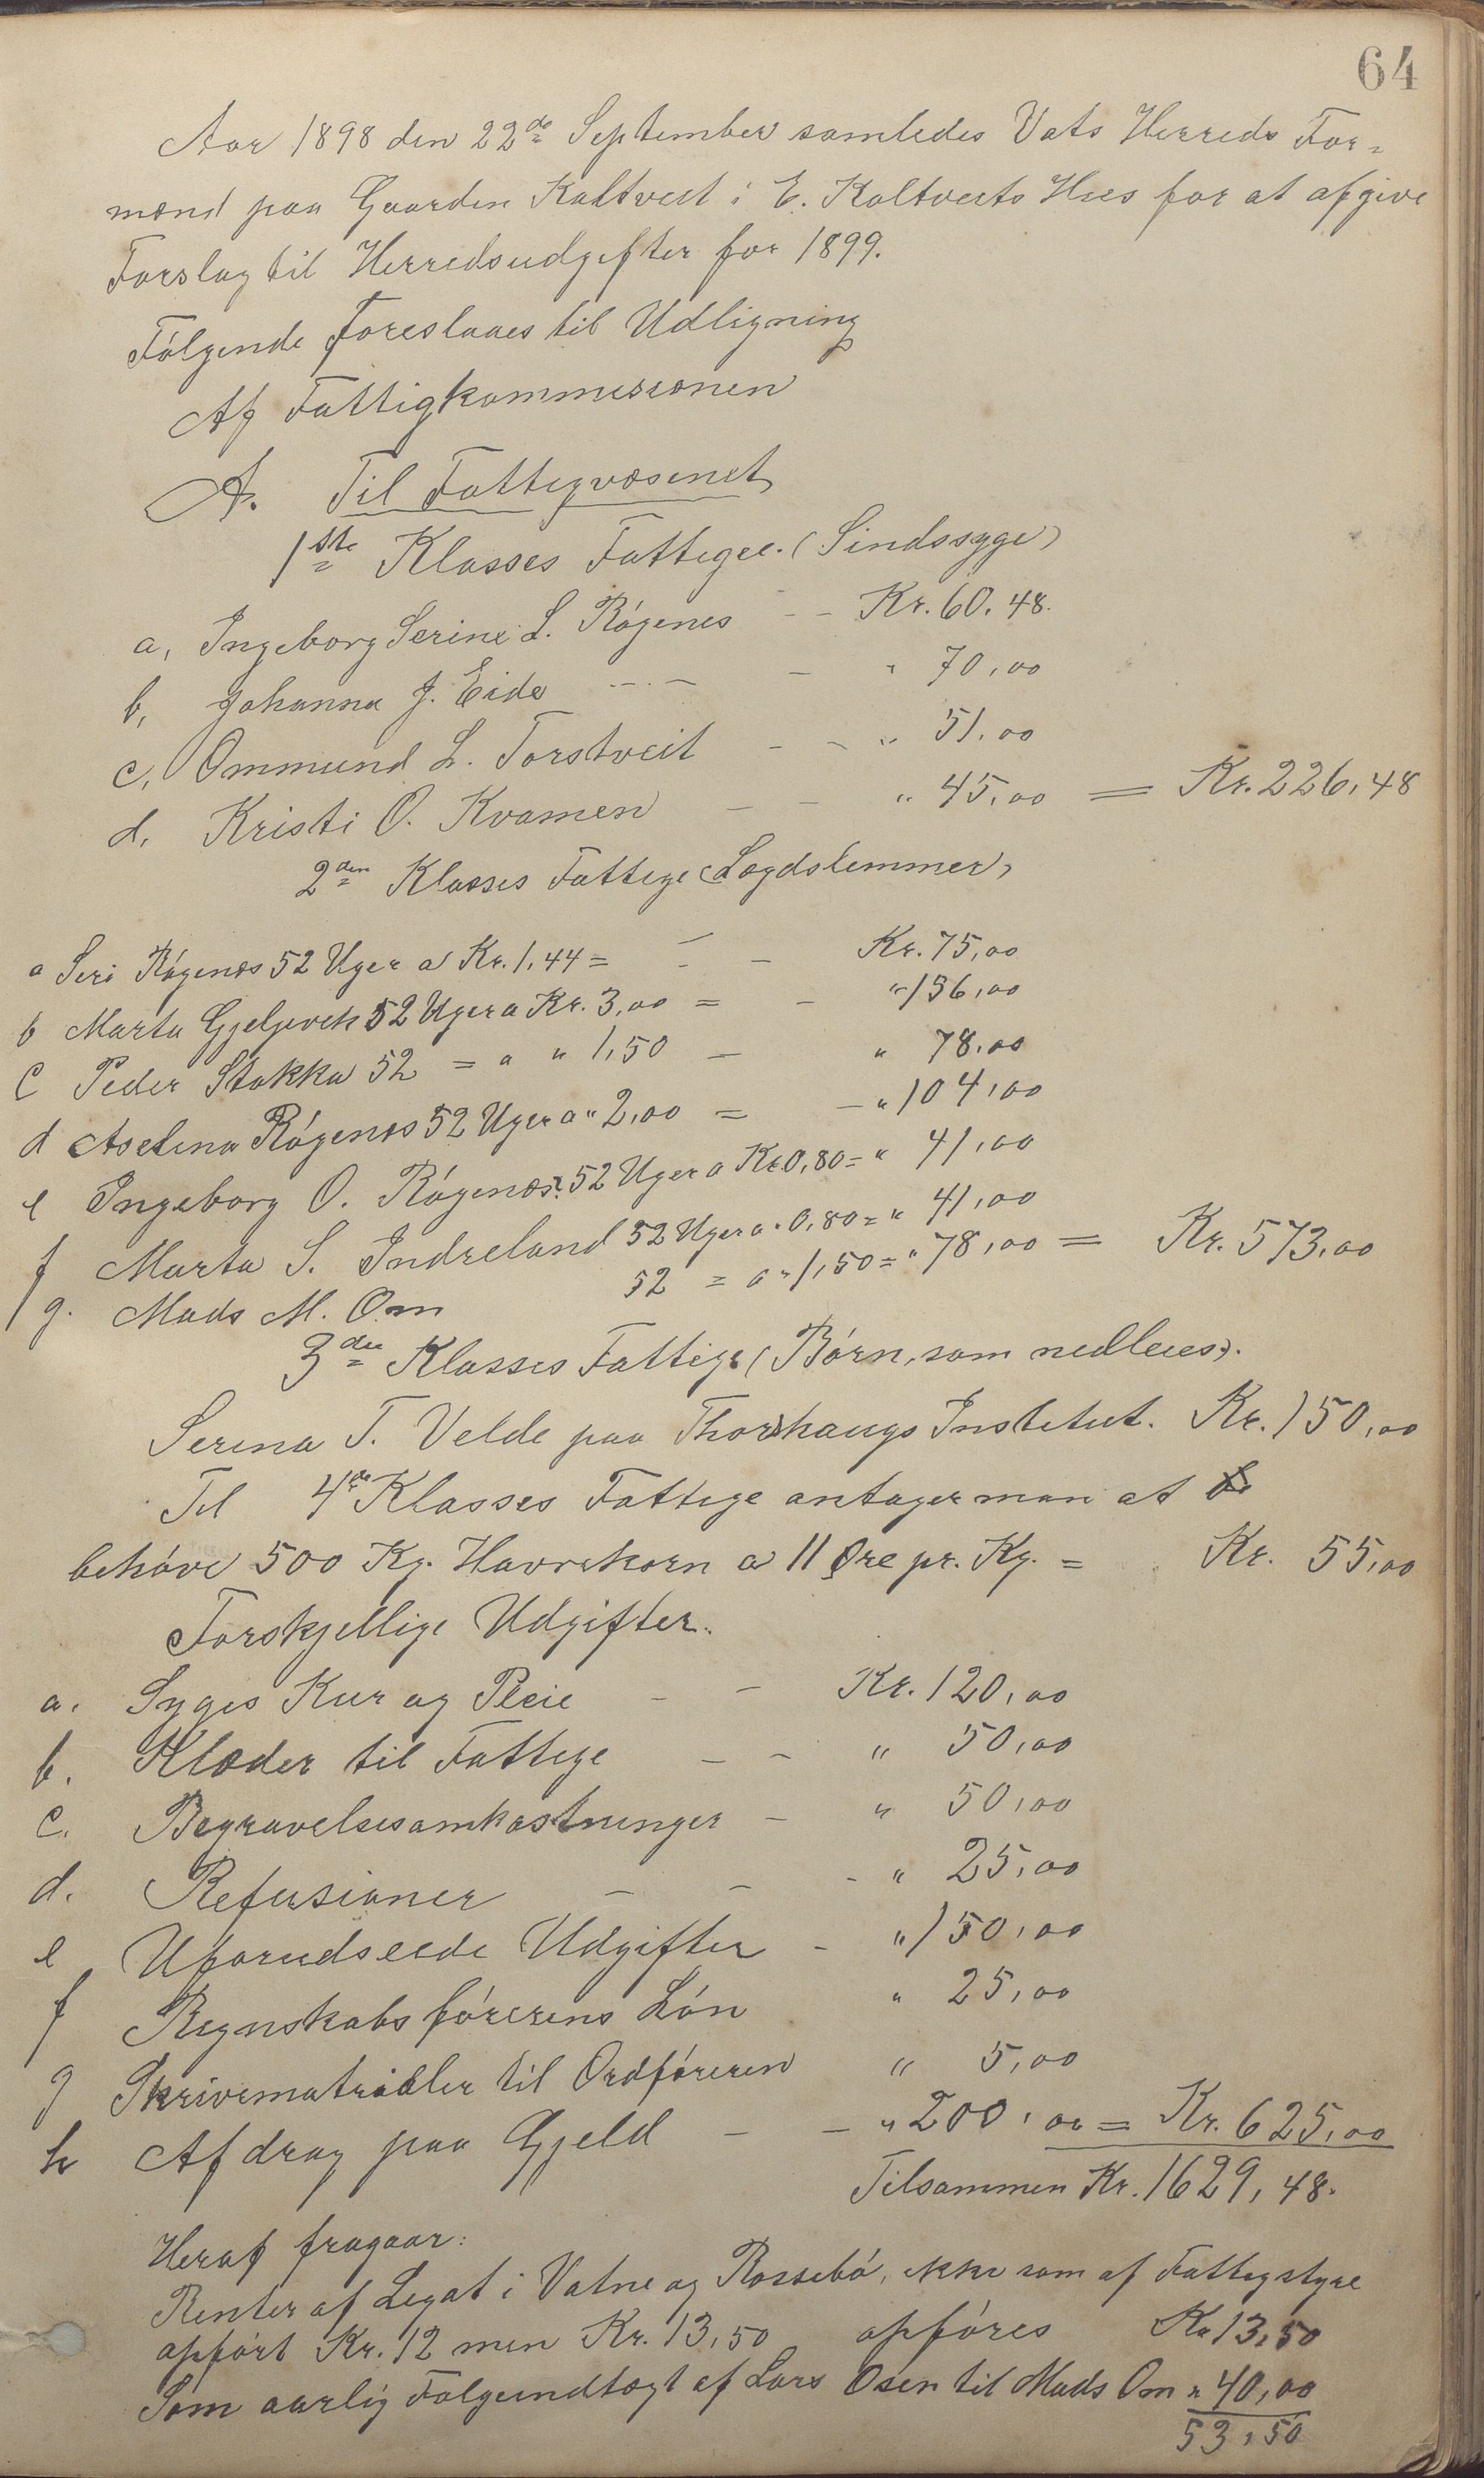 64
Aar 1898 den 22de September samledes Vats Herreds For=
mænd paa Gaarden Kaltveit i E. Kaltveits Hus for at afgive
Forslag til Herredsudgifter for 1899.
Følgende foreslaaes til Udligning
Af Fattigkommissionen
A. Til Fattigvæsenet
1ste Klasses Fattige. (Sindssyge)
a, Ingeborg Serine L. Røgenes - - Kr. 60,48.
b, Johanna J. Eide - - - " 70,00
c, Ommund L. Torstveit - - " 51,00
d, Kristi O. Kvamen - - " 45,00 = Kr. 226,48
2den Klasses Fattige (Lægdslemmer)
a Seri Røgenæs 52 Uger a Kr. 1,44 = - - Kr. 75,00
b Marta Gjeljevik 52 Uger a Kr. 3,00 = - " 156,00
c Peder Stakka 52 = a " 1,50 - " 78,00
d Aselina Røgenæs 52 Uger a " 2,00 = - " 104,00
e Ingeborg O. Røgenæs. 52 Uger a Kr 0,80 = " 41,00
f Marta S. Indreland 52 Uger a " 0,80 = " 41,00
g. Mads M. Om 52 = a " 1,50 = " 78,00 = Kr. 573,00
3die Klasses Fattige (Børn, som nedlæes).
Serina T. Velde paa Thorshaugs Institut. Kr. 150,00
Til 4de Klasses Fattige antager man at
behøve 500 Kg. Havrekorn a 11 Øre pr. Kg. = Kr. 55,00
Forskjellige Udgifter.
a. Syges Kur og Pleie - - Kr. 120,00
b. Klæder til Fattige - - " 50,00
c. Begravelsesomkostninger - " 50,00
d. Refusioner - - - " 25,00
e Uforudseede Udgifter - " 150,00
f Regnskabsførerens Løn " 25,00
g Skrivematrialer til Ordføreren " 5,00
h Afdrag paa Gjeld - - " 200,00 = Kr. 625,00
Tilsammen Kr. 1629,48.
Heraf fragaar:
Renter af Legat i Vatne og Rossebø, ikke som af Fattigstyre
opført Kr. 12 men Kr. 13,50 opføres Kr 13,50
Som aarlig Følgeindtægt af Lars Osen til Mads Om " 40,00
53,50